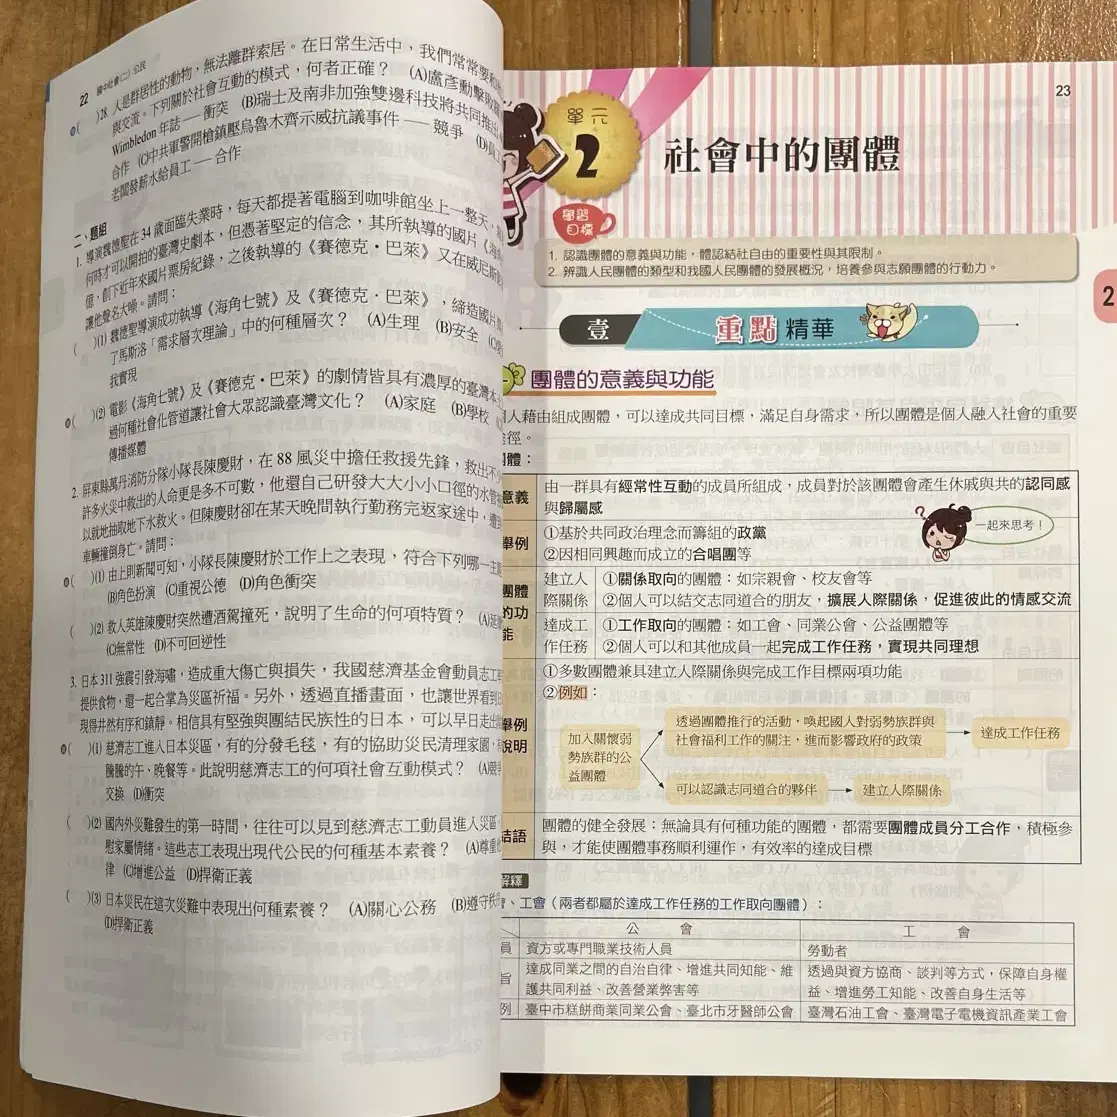 22 國中社會(二)公民
( )28. 人是群居性的動物，無法離群索居。在日常生活中，我們常常要和
與交流。下列關於社會互動的模式，何者正確？ (A)盧彥勳擊敗
Wimbledon 年誌——衝突 (B)瑞士及南非加強雙邊科技將共同推出
合作 (C)中共軍警開槍鎮壓烏魯木齊示威抗議事件——競爭 (D)員工
老闆發薪水給員工——合作
二、題組
1. 導演魏德聖在34歲面臨失業時，每天都提著電腦到咖啡館坐上一整天，
何時才可以開拍的臺灣史劇本，但憑著堅定的信念，其所執導的國片《海角
億，創下近年來國片票房紀錄，之後執導的《賽德克·巴萊》又在威尼斯
讓他聲名大噪。請問：
( )(1) 魏德聖導演成功執導《海角七號》及《賽德克·巴萊》，締造國片
了馬斯洛「需求層次理論」中的何種層次？ (A)生理 (B)安全 (C)
我實現
( )(2) 電影《海角七號》及《賽德克·巴萊》的劇情皆具有濃厚的臺灣
過何種社會化管道讓社會大眾認識臺灣文化？ (A)家庭 (B)學校
傳播媒體
2. 屏東縣萬丹消防分隊小隊長陳慶財，在88風災中擔任救援先鋒，救出不
許多火災中救出的人命更是多不可數，他還自己研發大大小小口徑的水管
以就地抽取地下水救火。但陳慶財卻在某天晚間執行勤務完返家途中，遭
車輛撞倒身亡。請問：
( )(1) 由上則新聞可知，小隊長陳慶財於工作上之表現，符合下列哪一主題
(B)角色扮演 (C)重視公德 (D)角色衝突
( )(2) 救人英雄陳慶財突然遭酒駕撞死，說明了生命的何項特質？ (A)延
(C)無常性 (D)不可回逆性
3. 日本311強震引發海嘯，造成重大傷亡與損失，我國慈濟基金會動員志工
提供食物，還一起合掌為災區祈福。另外，透過直播畫面，也讓世界看到
現得井然有序和鎮靜。相信具有堅強與團結民族性的日本，可以早日走出
( )(1) 慈濟志工進入日本災區，有的分發毛毯，有的協助災民清理家園，
騰騰的午、晚餐等。此說明慈濟志工的何項社會互動模式？ (A)競
交換 (D)衝突
( )(2) 國內外災難發生的第一時間，往往可以見到慈濟志工動員進入災區，
慰家屬情緒。這些志工表現出現代公民的何種基本素養？ (A)尊重
律 (C)增進公益 (D)捍衛正義
( )(3) 日本災民在這次災難中表現出何種素養？ (A)關心公務 (B)遵守秩
(D)捍衛正義
23
單元
2
社會中的團體
學習
目標
1. 認識團體的意義與功能，體認結社自由的重要性與其限制。
2. 辨識人民團體的類型和我國人民團體的發展概況，培養參與志願團體的行動力。
2
壹 重點精華
團體的意義與功能
人藉由組成團體，可以達成共同目標，滿足自身需求，所以團體是個人融入社會的重要
途徑。
團體：
意義
由一群具有經常性互動的成員所組成，成員對於該團體會產生休戚與共的認同感
與歸屬感
舉例
①基於共同政治理念而籌組的政黨
②因相同興趣而成立的合唱團等
? 一起來思考！
團體
的功
能
建立人
際關係
①關係取向的團體：如宗親會、校友會等
②個人可以結交志同道合的朋友，擴展人際關係，促進彼此的情感交流
達成工
作任務
①工作取向的團體：如工會、同業公會、公益團體等
②個人可以和其他成員一起完成工作任務，實現共同理想
舉例
說明
①多數團體兼具建立人際關係與完成工作目標兩項功能
②例如：
加入關懷弱
勢族群的公
益團體
透過團體推行的活動，喚起國人對弱勢族群與
社會福利工作的關注，進而影響政府的政策
達成工作任務
可以認識志同道合的夥伴
建立人際關係
結語
團體的健全發展：無論具有何種功能的團體，都需要團體成員分工合作，積極參
與，才能使團體事務順利運作，有效率的達成目標
解釋
、工會（兩者都屬於達成工作任務的工作取向團體）：
公會 工會
員 資方或專門職業技術人員 勞動者
旨 達成同業之間的自治自律、增進共同知能、維
護共同利益、改善營業弊害等
透過與資方協商、談判等方式，保障自身權
益、增進勞工知能、改善自身生活等
例 臺中市糕餅商業同業公會、臺北市牙醫師公會 臺灣石油工會、臺灣電子電機資訊產業工會